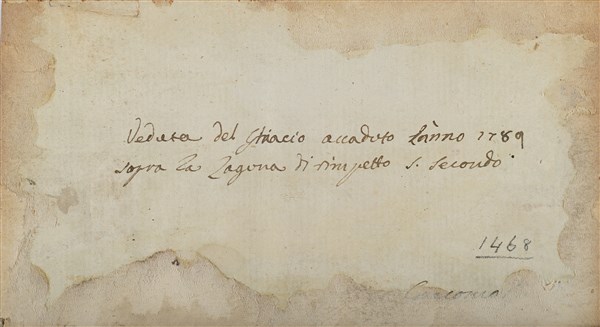 Veduta del Ghiacio accaduto l'anno 1789
sopra la Laguna di rimpetto S. Secondo.
1468